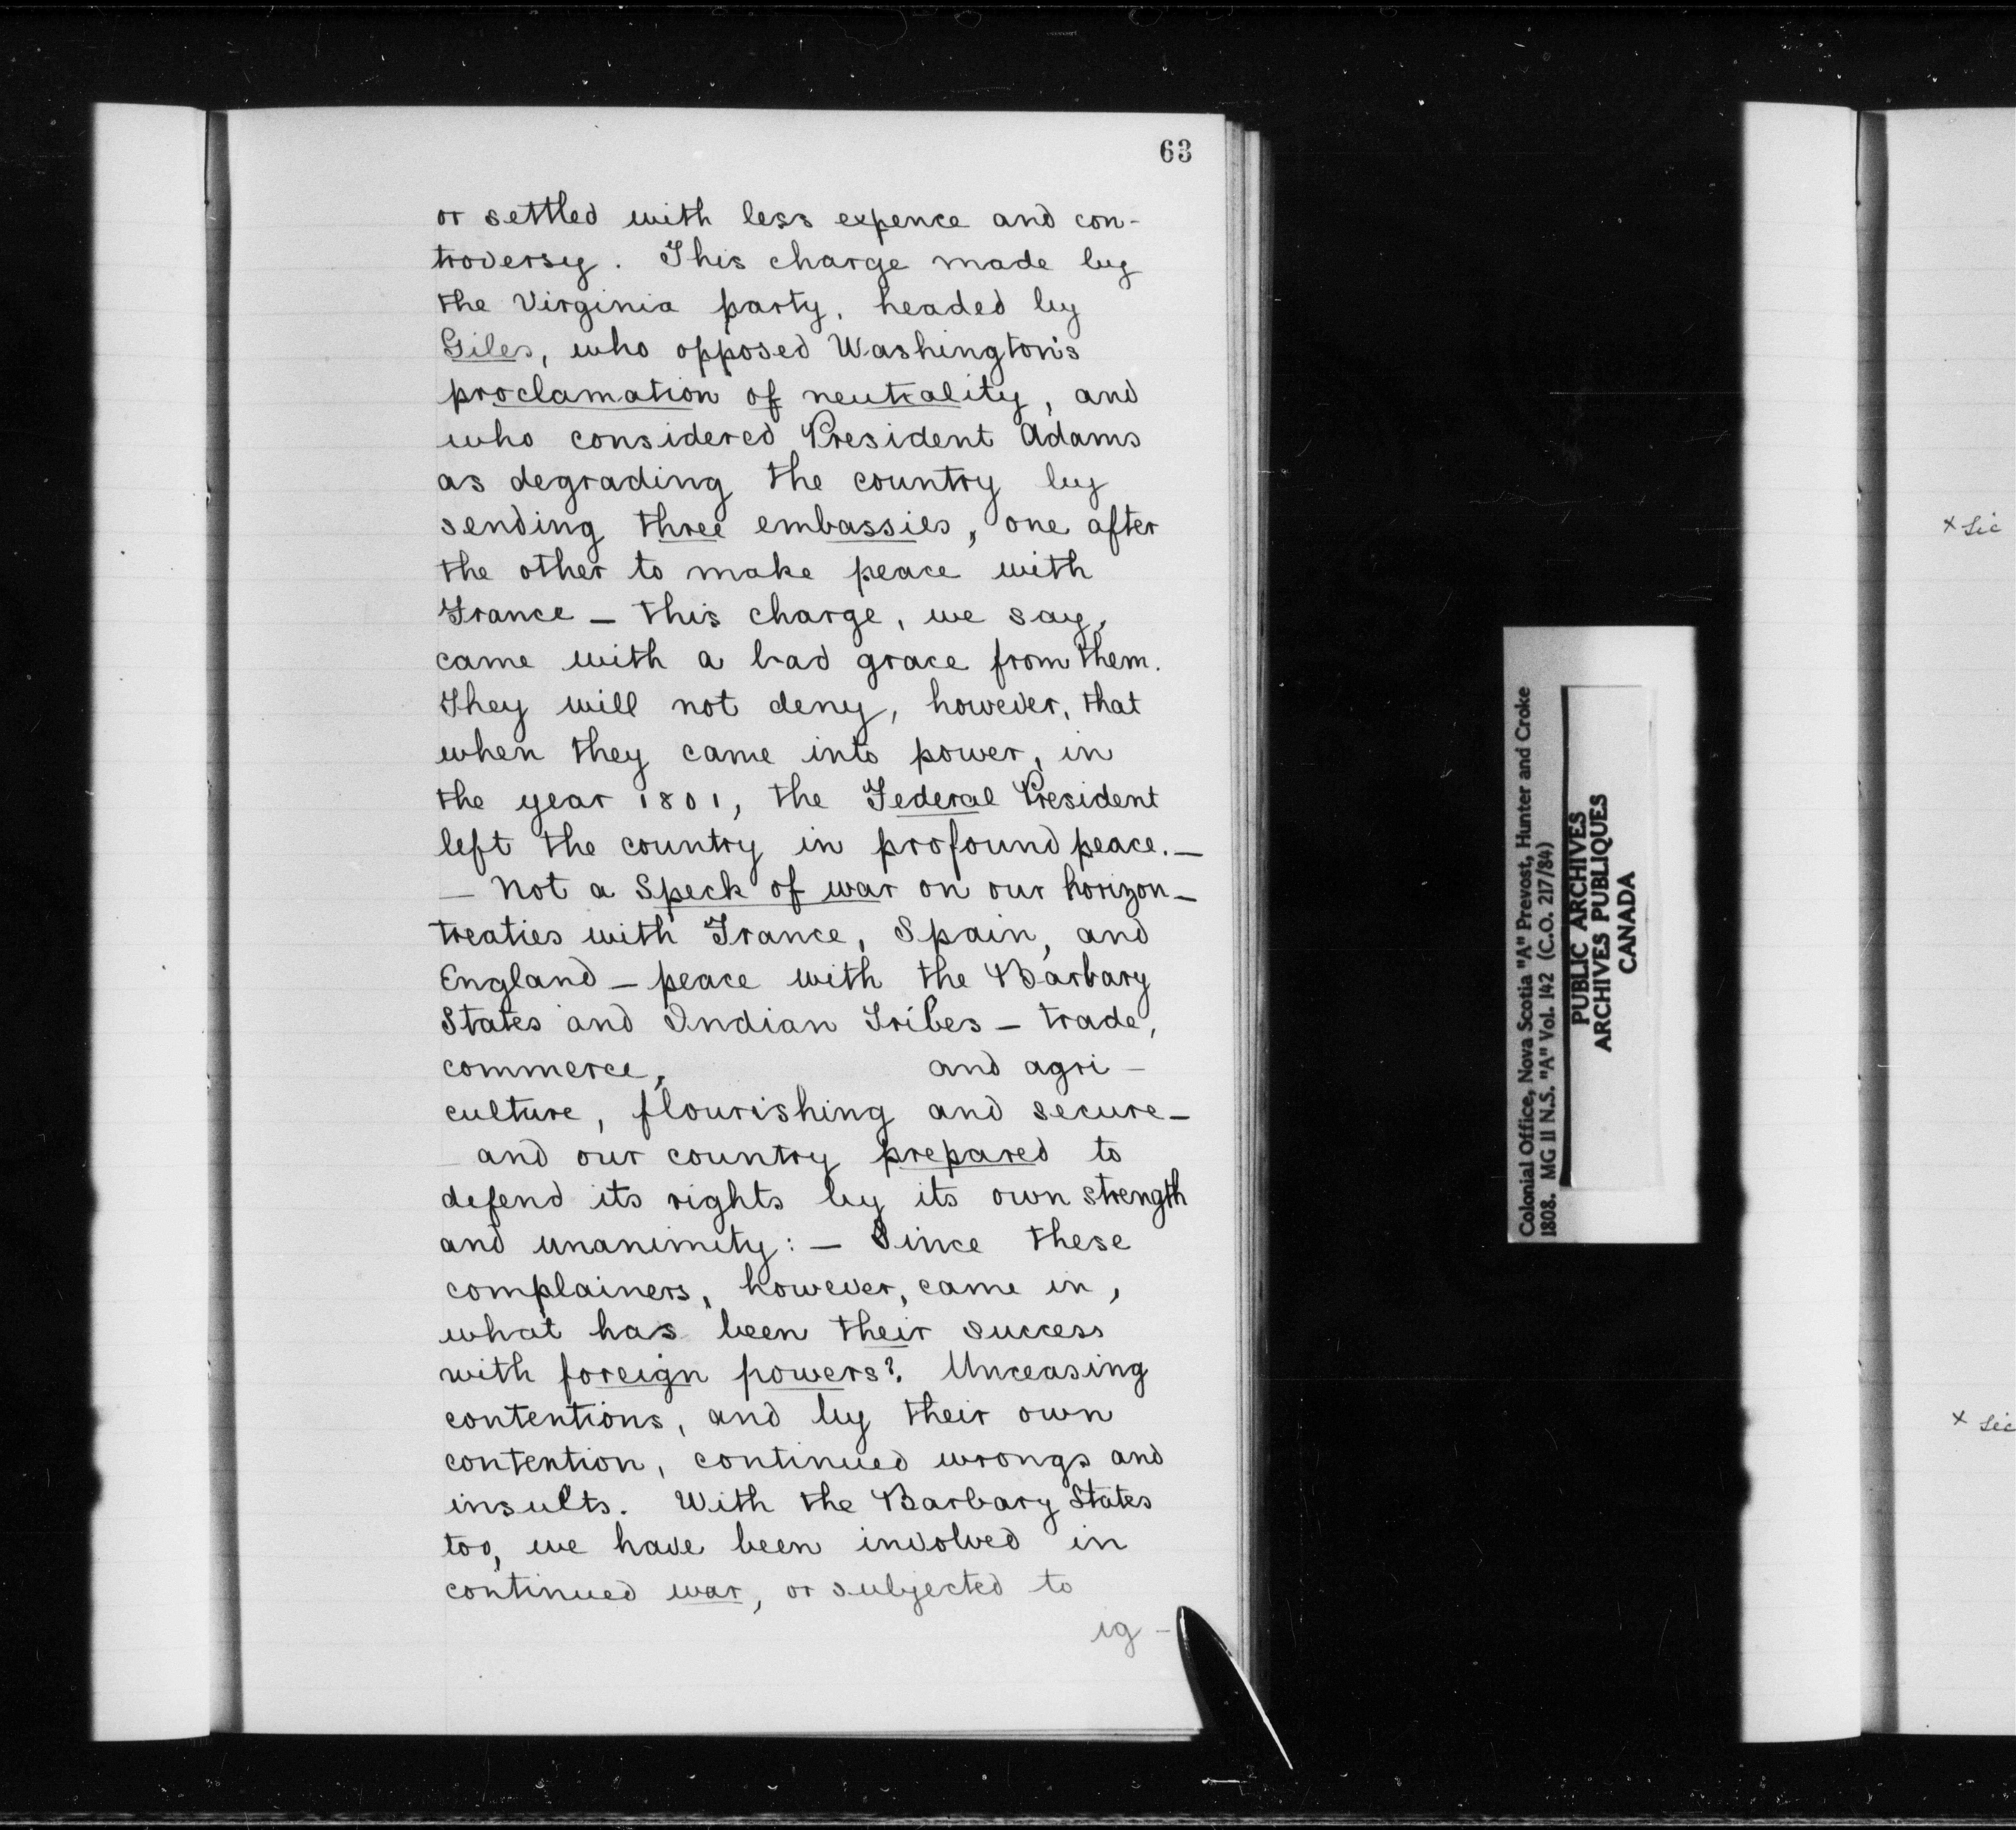 63
or settled with less expence and con-
troversy. This charge made by
the Virginia party, headed by
Giles, who opposed Washington's
proclamation of neutrality, and
who considered President Adams
as degrading the country by
sending three embassies, one after
the other to make peace with
France — this charge, we say,
came with a bad grace from them.
They will not deny, however, that
when they came into power, in
the year 1801, the Federal President
left the country in profound peace. —
— Not a Speck of war on our horizon —
treaties with France, Spain, and
England — peace with the Barbary
States and Indian Tribes — trade,
commerce, and agri-
culture, flourishing and secure —
and our country prepared to
defend its rights by its own strength
and unanimity: — Since these
complainers, however, came in,
what has been their success
with foreign powers? Unceasing
contentions, and by their own
contention, continued wrongs and
insults. With the Barbary States
too, we have been involved in
continued war, or subjected to
ig-
Colonial Office, Nova Scotia "A" Prevost, Hunter and Croke
1808. MG 11 N.S. "A" Vol. 142 (C.O. 217/84)
PUBLIC ARCHIVES
ARCHIVES PUBLIQUES
CANADA
x Sic
x Sic